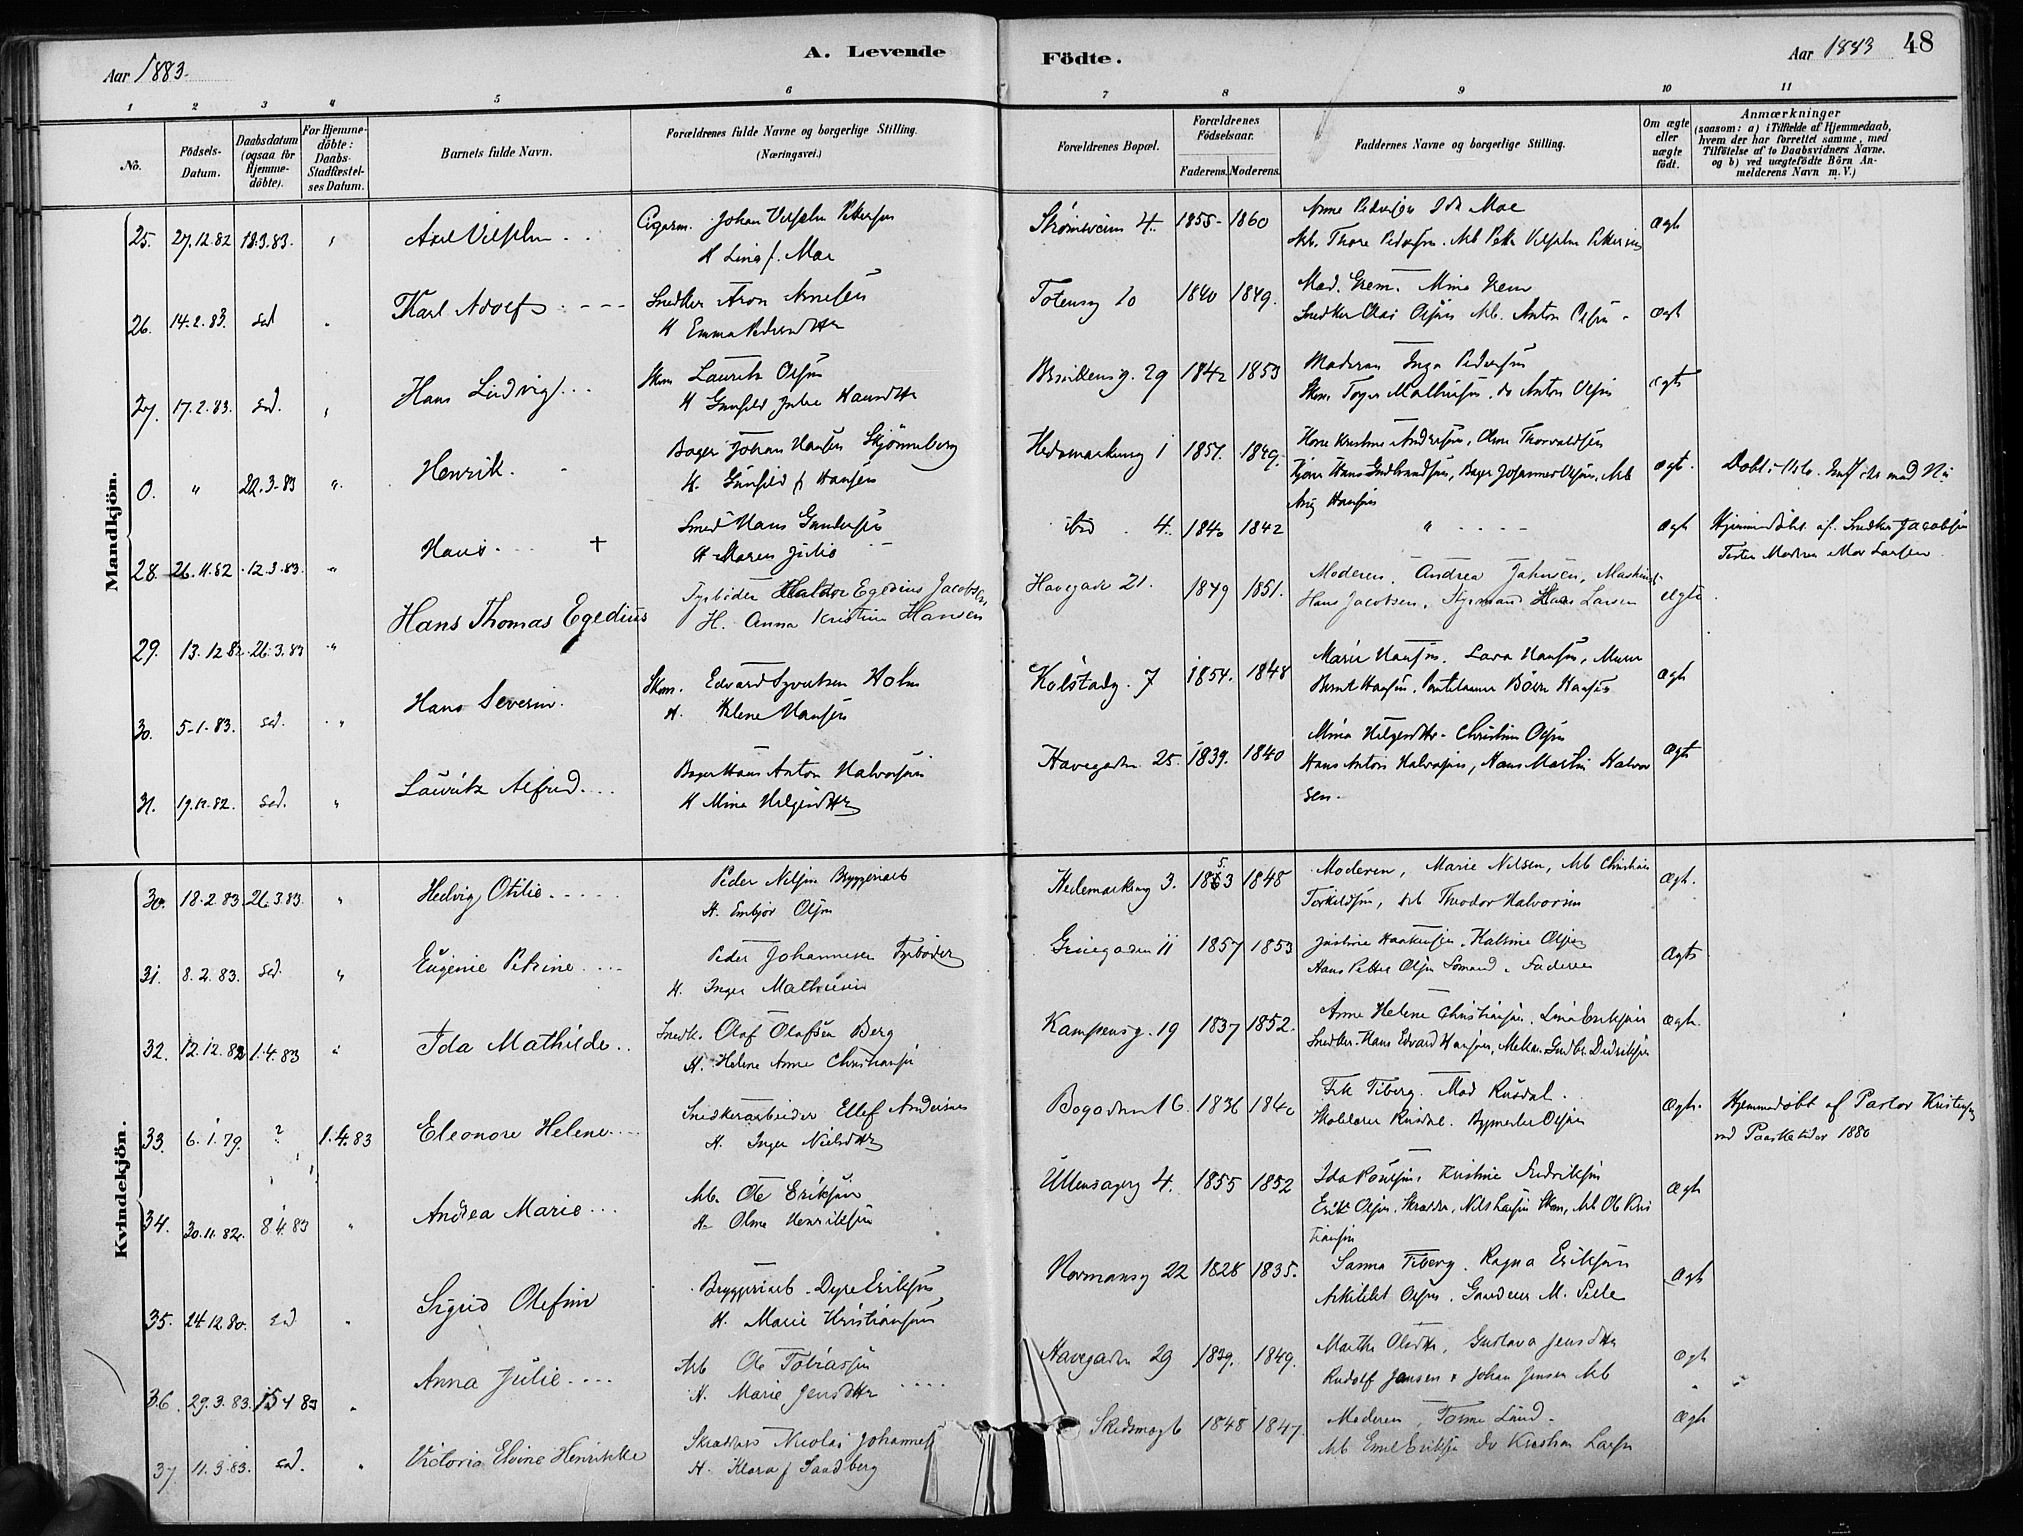 Aar 1883.
A. Levende
Födte.
Aar 1883
48
1 2 3 4 5 6 7 8 9 10 11
No.
Födsels-
Datum.
Daabsdatum
(ogsaa for
Hjemme-
döbte).
For Hjemme-
döbte:
Daabs-
Stadfæstel-
ses Datum.
Barnets fulde Navn.
Forældrenes fulde Navne og borgerlige Stilling.
(Næringsvei.)
Forældrenes Bopæl.
Forældrenes
Födselsaar.
Faderens. Moderens.
Faddernes Navne og borgerlige Stilling.
Om ægte
eller
uægte
födt.
Anmærkninger
(saasom: a) i Tilfælde af Hjemmedaab,
hvem der har forrettet samme, med
Tilföielse af to Daabsvidners Navne.
og b) ved uægtefödte Börn An-
melderens Navn m. V.)
Mandkjön.
25. 27.12.82 18.3.83. Axel Vilhelm
Cigarm. Johan Vilhelm Petersen
H Lina f. Moe
Strømsveien 4. 1855 - 1860
Anne Pedersen Ida Moe
Arb. Thore Pedersen. Arb Petr Vilhelm Petersen
Ægt
26. 14.2.83. sad " Karl Adolf
Snedker Aron Arnesen
H Emma Pedersdttr
Totensg 20 1840 1849.
Mad. Grem. Mina Grem
Snedker Olai Olsen Arb. Anton Olsen
Ægt
27. 17.2.83. sad. Hans Ludvig
Skom Lauritz Olsen
H Gunhild
29 1842 1853
Moderen Inga Pedersen
Anton Olsen
Ægt
0. " 22.3.83 " Henrik.
Bager Johan Hansen Skjønneberg
H. Gunhild f Hansen
Hedemarkeng 1 1857. 1849.
Kone Kristine Andersen, Oline Thorvaldsen
Hans Gudbrandsen, Bager Johannes Olsen, Arb
Hansen
Ægt.
28. 26.11.82 12.3.83. " Hans +
Smed Hans Gundersen
H Maren Julie
ibid 4. 1840 1842
"
Ægt
Hjemmedøbt af Snedker Jacobsen
29. 13.12.82. 26.3.83 " Hans Thomas Egedius
Fyrbøder Haldor Egedius Jacobsen
H. Anna Kristine Hansen
Havegade 21. 1849 1851.
Moderen. Andrea Johnsen, Maskinist
Hans Jacobsen, Styrmand Hans Larsen
Ægte
30. 5-1.83. sad. " Hans Severin.
Skom. Edvard Syvertsen Holm
H. Helene Hansen
Kolstadg. 7 1854. 1848
Marie Hansen. Lava Hansen, Murer
Bernt Hansen.
Ægt
31. 19.12.82. sad. " Lauritz Alfred
Bager Hans Anton Halvorsen
H Mina Helgesdttr
Havegaden 25. 1839. 1840
Mina Helgesdttr - Christine Olsen
Hans Anton Halvorsen, Hans Martin Halvor
sen.
Ægt
Kvindekjön.
30. 18.2.83. 26.3.83 " Hedvig Otilie
Peder Nilsen Bryggeriarb
H. Embjør Olsen
Hedemarkeng 3. 1853 1848
Moderen, Marie Nilsen, Arb Christian
Torkildsen, Arb Theodor Halvorsen
Ægt.
31. 8.2.83. sad. " Eugenie Petrine
Peder Johannesen Fyrbøder
H. Inger Mathisen
Gruegaden 11 1857 1853
Hans Petter Olsen Sømand. Faderen
Ægt
32. 12.12.82 1.4.83 " Ida Mathilde
Snedk. Olaf Olafsen Berg
H. Helene Anne Christiansen
Kampensg. 19 1837 1852.
Anne Helene Christiansen. Lina Eriksen
Snedker Hans Edvard Hansen, Gudbr. Didriksen
Ægt.
33. 6.1.79. ? 1.4.83 Eleonore Helene
Snedkerarbeider Ellef Andersen
H. Inger Nielsdttr
Bogaden 16. 1836 1840
Frk Tiberg. Mad Rusdal.
Skolelærer Rusdal. Bygmester Olsen
Ægt.
Hjemmedøbt af Pastor Kristensen
ved Paasketider 1880
34. 30.11.82. 8.4.83 " Andrea Marie
Arb. Ole Eriksen
H. Olme Henriksen
Ullensagerg 4. 1855 1852
Ida Poulsen. Kristine Fredriksen
Erik Olsen. Skrædder, Nils Larsen Skom, Arb Ole Kris
tiansen
Ægt
35. 24.12.80. sad " Sigrid Olefine
Bryggeriarb. Dyre Eriksen
H. Marie Kristiansen
Normansg 22 1828 1835.
Sanna Tiberg. Ragna Eriksen
Arkitekt Olsen. Gaardeier M. Selle
Ægt
36. 29.3.83. 15 4 83 " Anna Julie
Arb Ole Tobiassen
H. Marie Jensdttr
Havegaden 29 1839. 1849.
Marthe Olsdttr, Gustava Jensdttr
Rudolf Jensen & Johan Jensen Arb
Ægt
37 11.3.83. sad. " Victoria Elvine Henrikke
Skrædder Nicolai Johannes
H. Klara f Sandberg
Skedsmogt 1848 1847.
Moderen, Tomine Lund
Arb Emil Eriksen do Kristian Larsen
Ægt